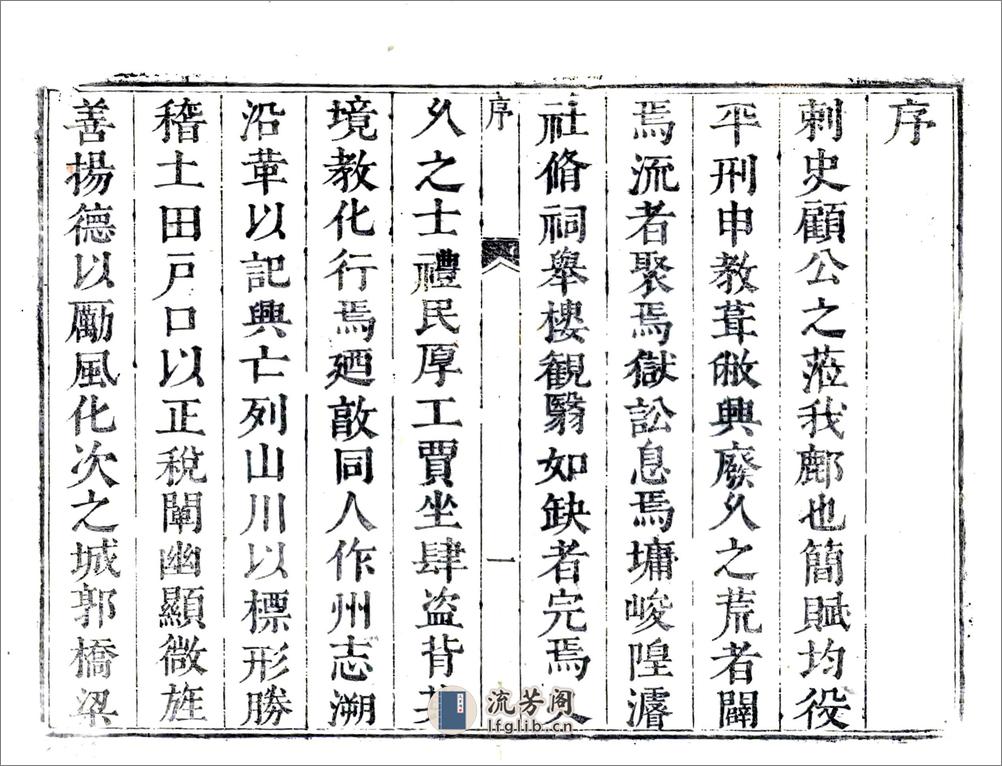 序
刺史顧公之蒞我鄜也簡賦均役
平刑申教葺敝興廢乆之荒者闢
焉流者聚焉獄訟息焉墉峻隍濬
社脩祠舉樓観翳如缺者完焉
序 一
乆之士禮民厚工賈坐肆盗背
境教化行焉廼敦同人作州志溯
沿革以記興亡列山川以標形勝
稽土田戸口以正稅闡幽顯微旌
善揚德以勵風化次之城郭橋梁
流芳阁
lfglib.cn.com